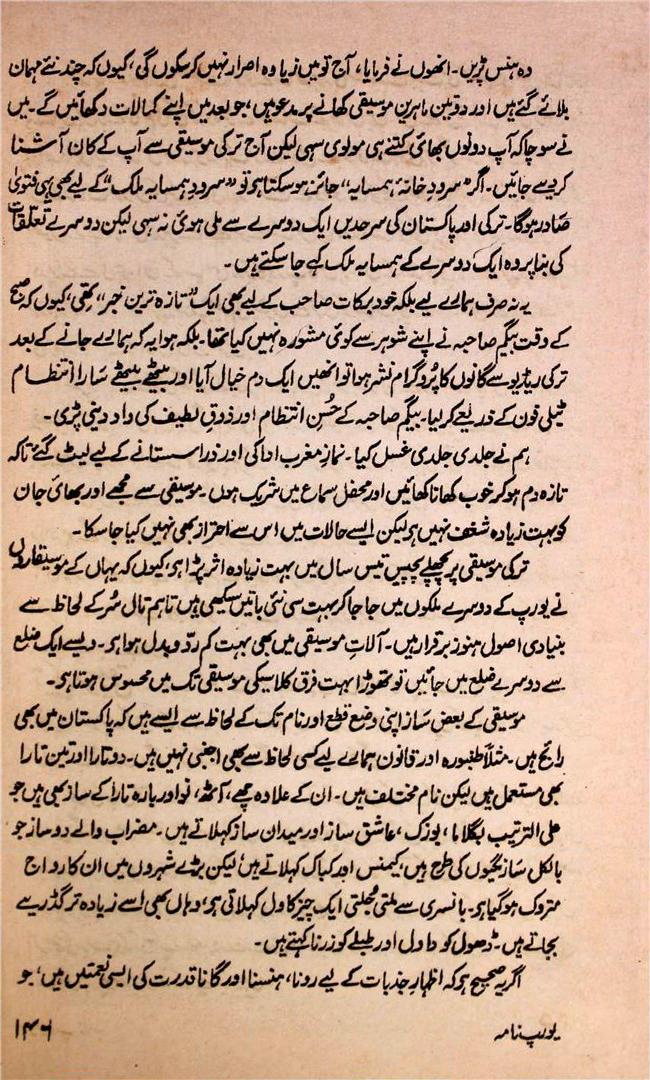 وہ ہنس پڑیں۔ انھوں نے فرمایا، آج تو میں زیادہ اصرار نہیں کر سکوں گی، کیوں کہ چند نئے مہمان
بلائے گئے ہیں اور دو تین ماہرینِ موسیقی کھانے پر مدعو ہیں، جو بعد میں اپنے کمالات دکھائیں گے۔ میں
نے سوچا کہ آپ دونوں بھائی کتنے ہی مولوی سہی لیکن آج ترکی موسیقی سے آپ کے کان آشنا
کر دیے جائیں۔ اگر "سرودِ خانۂ ہمسایہ" جائز ہو سکتا ہے تو "سرودِ ہمسایہ ملک" کے لیے بھی یہی فتویٰ
صادر ہوگا۔ ترکی اور پاکستان کی سرحدیں ایک دوسرے سے ملی ہوئی نہ سہی لیکن دوسرے تعلقات
کی بنا پر وہ ایک دوسرے کے ہمسایہ ملک کہے جا سکتے ہیں۔
یہ نہ صرف ہمارے لیے بلکہ خود برکات صاحب کے لیے بھی ایک "تازہ ترین خبر" تھی، کیوں کہ صبح
کے وقت بیگم صاحبہ نے اپنے شوہر سے کوئی مشورہ نہیں کیا تھا۔ بلکہ ہوا یہ کہ ہمارے جانے کے بعد
ترکی ریڈیو سے گانوں کا پروگرام نشر ہوا تو انھیں ایک دم خیال آیا اور بیٹھے بیٹھے سارا انتظام
ٹیلی فون کے ذریعے کر لیا۔ بیگم صاحبہ کے حُسنِ انتظام اور ذوقِ لطیف کی داد دینی پڑی۔
ہم نے جلدی جلدی غسل کیا۔ نمازِ مغرب ادا کی اور ذرا سستانے کے لیے لیٹ گئے تاکہ
تازہ دم ہو کر خوب کھانا کھائیں اور محفلِ سماع میں شریک ہوں۔ موسیقی سے مجھے اور بھائی جان
کو بہت زیادہ شغف نہیں ہے لیکن ایسے حالات میں اس سے احتراز بھی نہیں کیا جا سکتا۔
ترکی موسیقی پر پچھلے پچیس تیس سال میں بہت زیادہ اثر پڑا ہے، کیوں کہ یہاں کے موسیقاروں
نے یورپ کے دوسرے ملکوں میں جا جا کر بہت سی نئی باتیں سیکھی ہیں تاہم تال سُر کے لحاظ سے
بنیادی اصول ہنوز برقرار ہیں۔ آلاتِ موسیقی میں بھی بہت کم ردّ و بدل ہوا ہے۔ ویسے ایک ضلع
سے دوسرے ضلع میں جائیں تو تھوڑا بہت فرق کلاسیکی موسیقی تک میں محسوس ہوتا ہے۔
موسیقی کے بعض ساز اپنی وضع قطع اور نام تک کے لحاظ سے ایسے ہیں کہ پاکستان میں بھی
رائج ہیں۔ مثلاً طنبورہ اور قانون ہمارے لیے کسی لحاظ سے بھی اجنبی نہیں ہیں۔ دوتارا اور تین تارا
بھی مستعمل ہیں لیکن نام مختلف ہیں۔ ان کے علاوہ چھے، آٹھ، نو اور بارہ تارا کے ساز بھی ہیں جو
علی الترتیب بگلاما، بوزک، عاشق ساز اور میدان ساز کہلاتے ہیں۔ مضراب والے دو ساز جو
بالکل سارنگیوں کی طرح ہیں، کیمنس اور کباک کہلاتے ہیں لیکن بڑے شہروں میں ان کا رواج
متروک ہو گیا ہے۔ بانسری سے ملتی جُلتی ایک چیز کاول کہلاتی ہے، وہاں بھی اسے زیادہ تر گڈریے
بجاتے ہیں۔ ڈھول کو داول اور طبلے کو زرنا کہتے ہیں۔
اگر یہ صحیح ہے کہ اظہارِ جذبات کے لیے رونا، ہنسنا اور گانا قدرت کی ایسی نعمتیں ہیں، جو
یورپ نامہ
۱۴۶